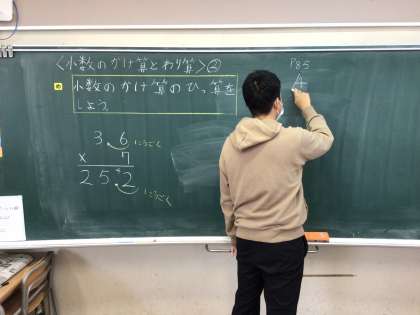 〈小数のかけ算とわり算〉②
め
小数のかけ算のひっ算を
しよう
3.6 1こうごく
× 7
25.2
1こうごく
P85
4